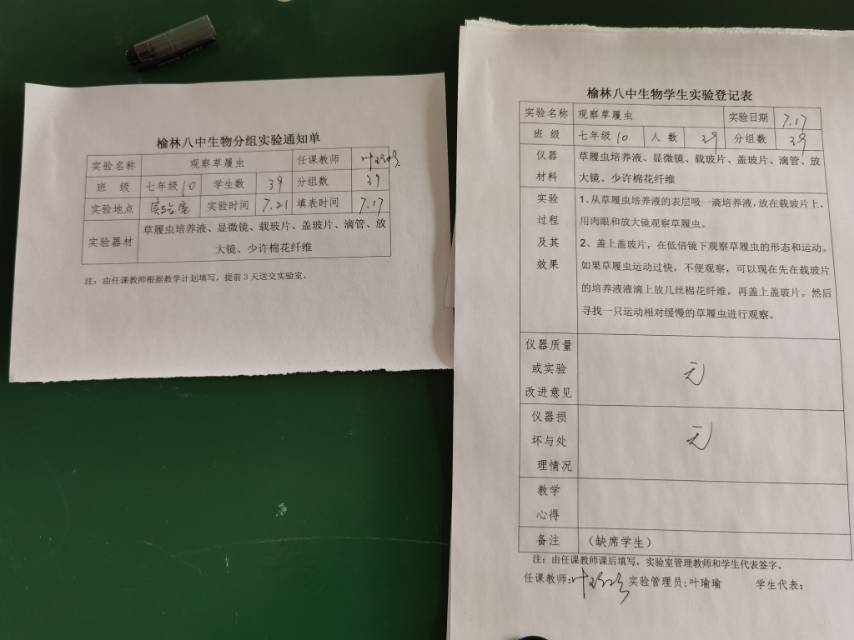 榆林八中生物分组实验通知单
实验名称 观察草履虫 任课教师
班 级 七年级10 学生数 39 分组数 39
实验地点 实验室 实验时间 7.21 填表时间 7.17
实验器材 草履虫培养液、显微镜、载玻片、盖玻片、滴管、放
大镜、少许棉花纤维
注：由任课教师根据教学计划填写，提前3天送交实验室。
榆林八中生物学生实验登记表
实验名称 观察草履虫 实验日期 7.17
班 级 七年级10 人 数 39 分组数 39
仪器 草履虫培养液、显微镜、载玻片、盖玻片、滴管、放
材料 大镜、少许棉花纤维
实验 1、从草履虫培养液的表层吸一滴培养液，放在载玻片上，
过程 用肉眼和放大镜观察草履虫。
及其 2、盖上盖玻片，在低倍镜下观察草履虫的形态和运动。
效果 如果草履虫运动过快，不便观察，可以现在先在载玻片
的培养液液滴上放几丝棉花纤维，再盖上盖玻片。然后
寻找一只运动相对缓慢的草履虫进行观察。
仪器质量
或实验 无
改进意见
仪器损
坏与处 无
理情况
教学
心得
备注 （缺席学生）
注：由任课教师课后填写，实验室管理教师和学生代表签字。
任课教师: 实验管理员:叶瑜瑜 学生代表: